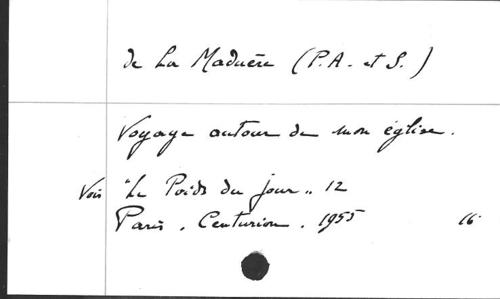 de La Maduère (P.A. et S.)
Voyage autour de mon église.
Voir "Le Poids du jour" 12
Paris. Centurion. 1955 16